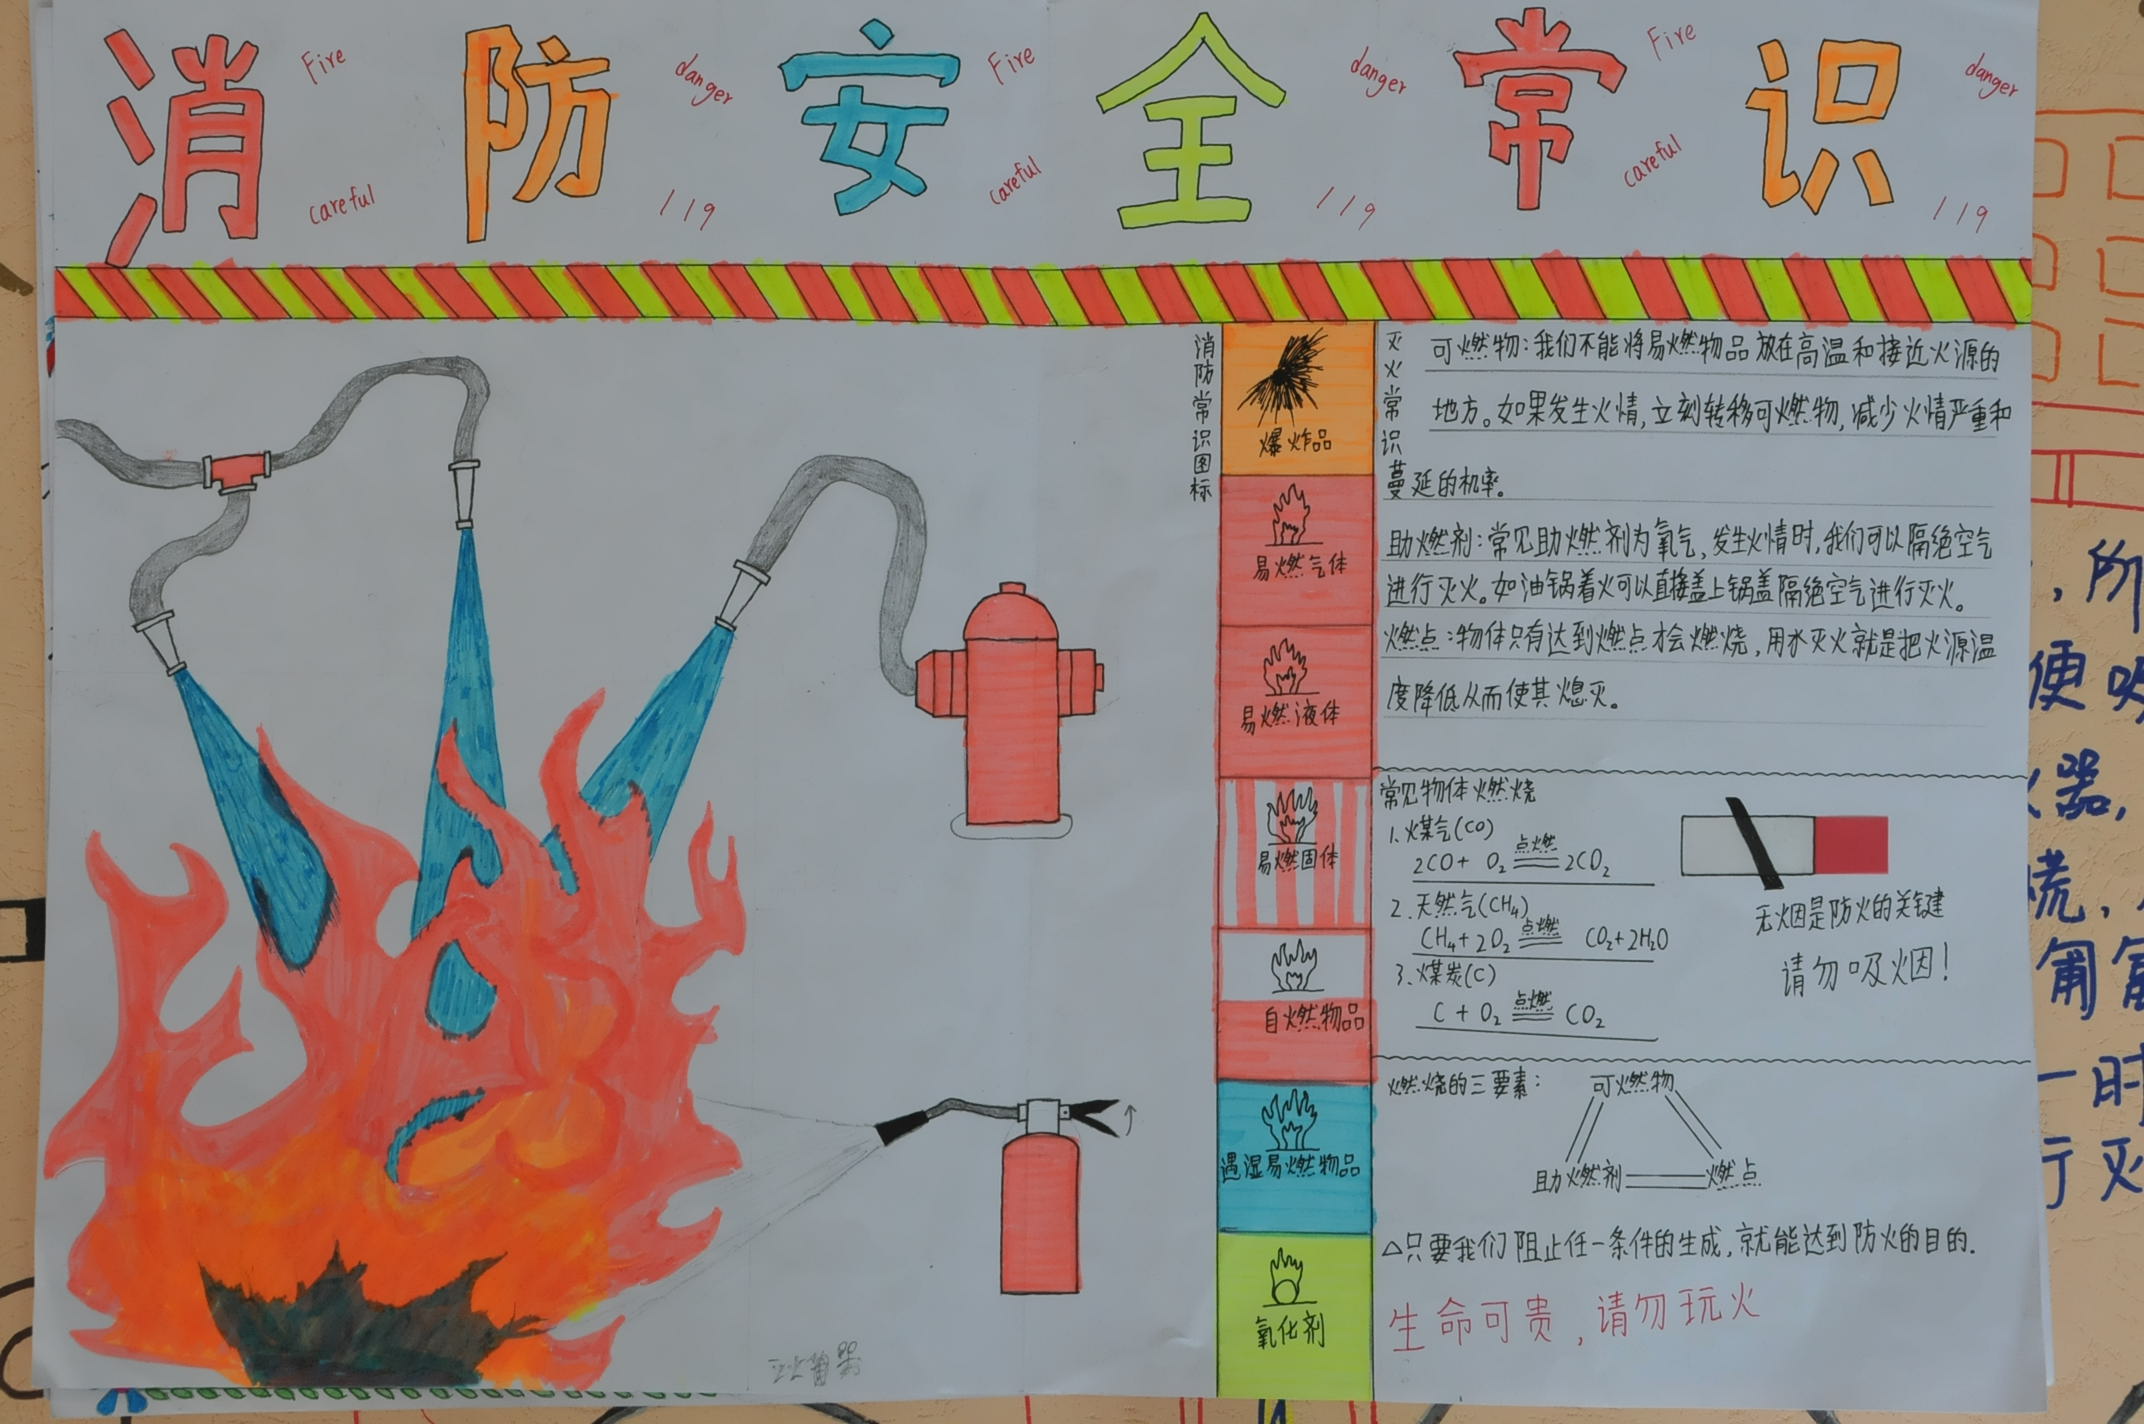 消防安全常识
Fire danger Fire danger Fire danger
careful 119 careful 119 careful 119
消防常识图标
爆炸品
易燃气体
易燃液体
易燃固体
自燃物品
遇湿易燃物品
氧化剂
灭火常识
可燃物:我们不能将易燃物品放在高温和接近火源的
地方。如果发生火情,立刻转移可燃物,减少火情严重和
蔓延的机率。
助燃剂:常见助燃剂为氧气,发生火情时,我们可以隔绝空气
进行灭火。如油锅着火可以直接盖上锅盖隔绝空气进行灭火。
燃点:物体只有达到燃点才会燃烧,用水灭火就是把火源温
度降低从而使其熄灭。
常见物体燃烧
1.煤气(CO)
2CO+ O₂ 点燃 2CO₂
2.天然气(CH₄)
CH₄+2O₂ 点燃 CO₂+2H₂O
3.煤炭(C)
C + O₂ 点燃 CO₂
无烟是防火的关键
请勿吸烟!
燃烧的三要素:
可燃物
助燃剂 燃点
△只要我们阻止任一条件的生成,就能达到防火的目的.
生命可贵,请勿玩火
,所
便
器,
慌,
一时
行灭